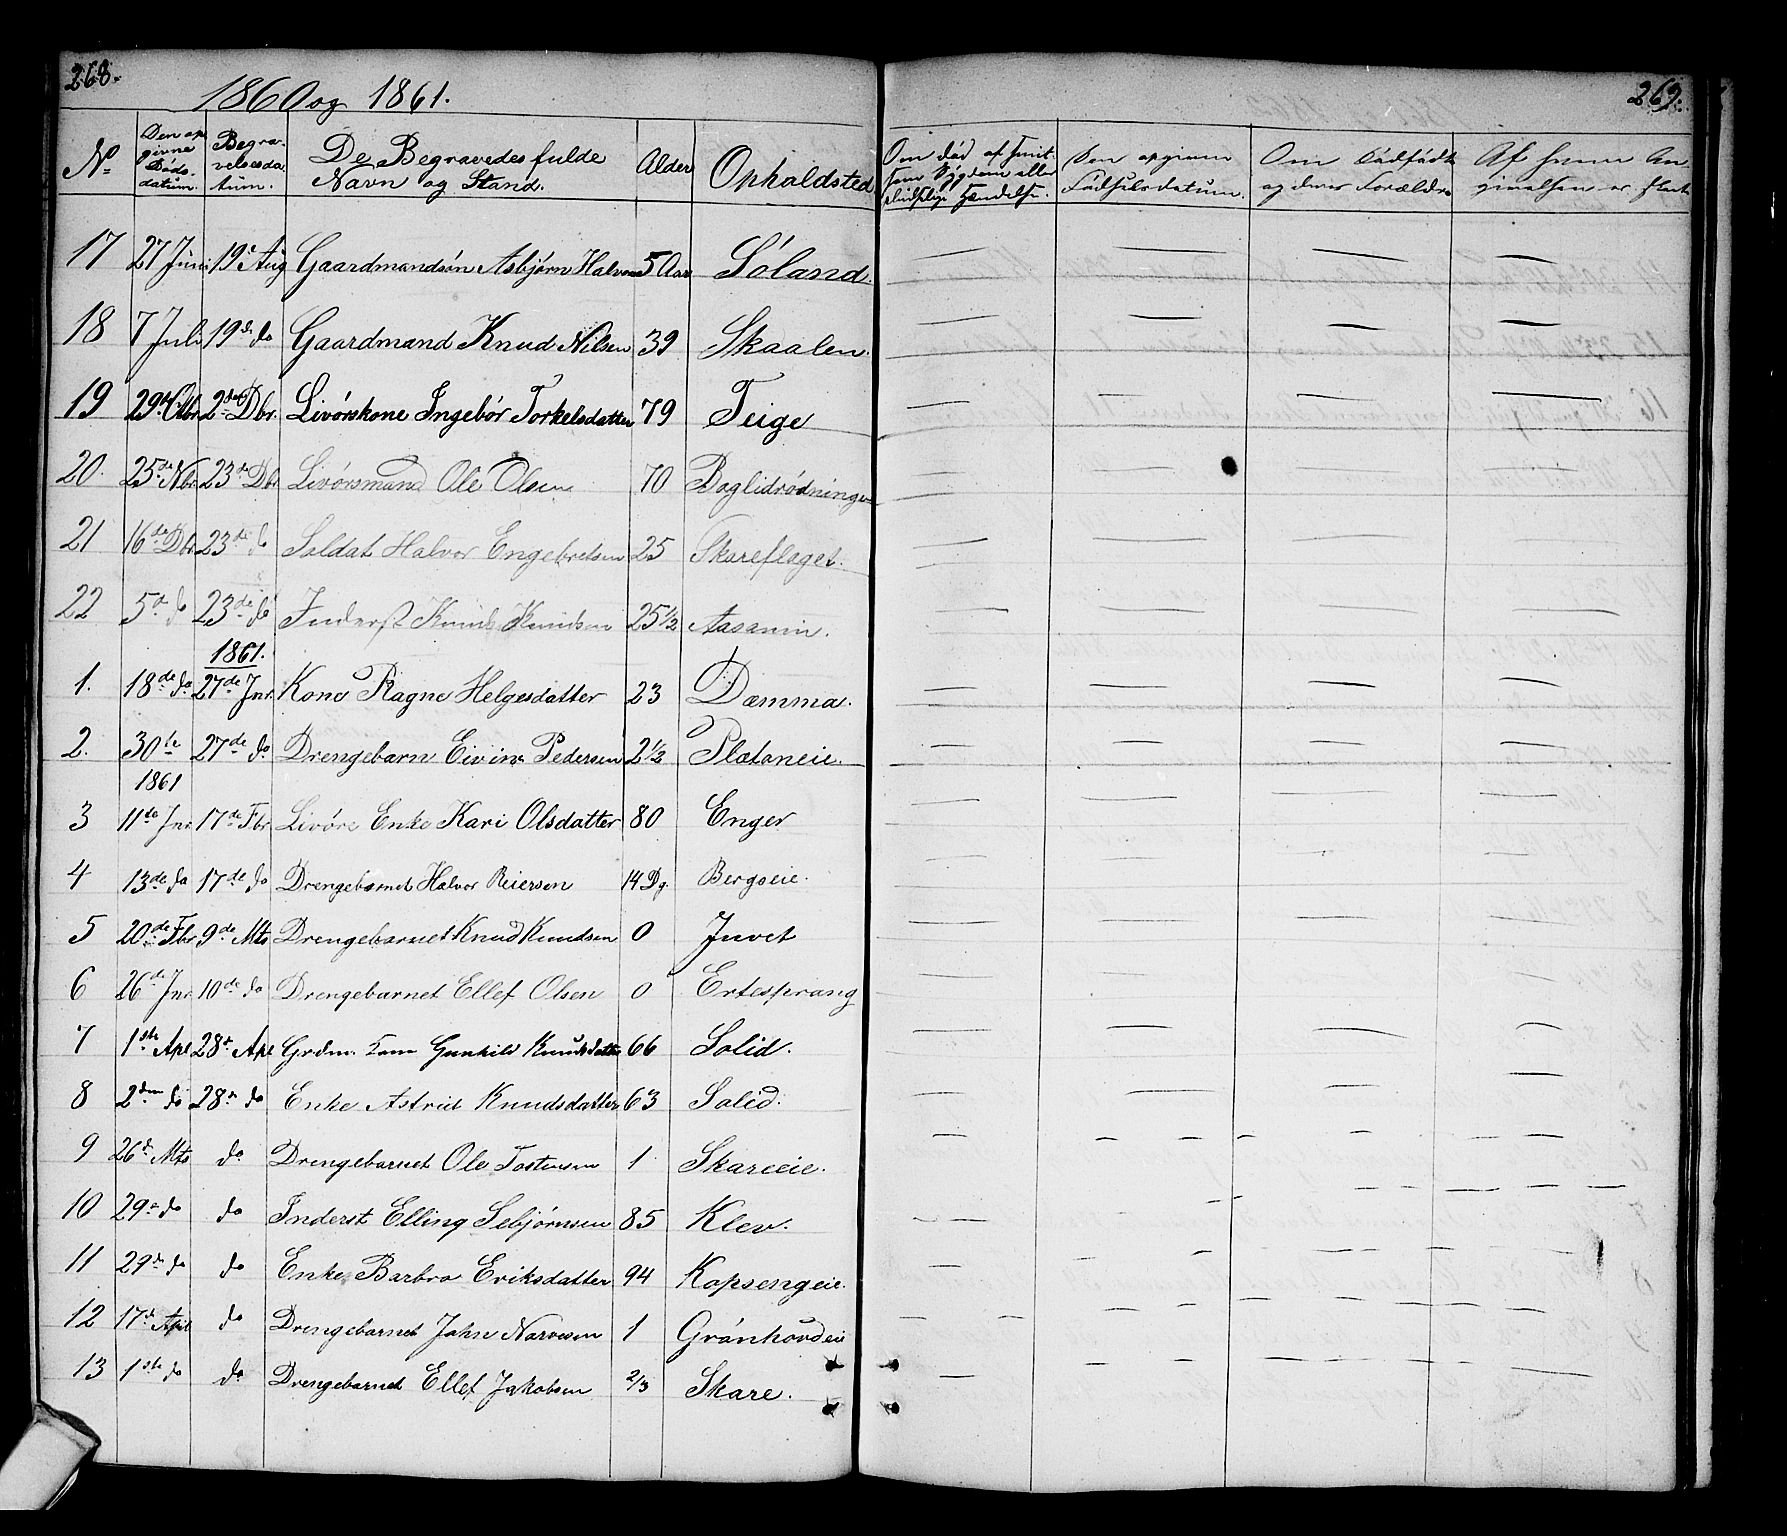 268.
1860 og 1861.
No
Den opgivne Dødsdatum.
Begravelsesdatum.
De Begravedes fulde Navn og Stand.
Alder
Opholdsted
17 27 Juni 19de Aug Gaardmandsön Asbjørn Halvors 5 Aar Sóland.
18 7 Juli 19de do Gaardmand Knud Nilsen 39 Skaalen.
19 29de Otbr 2den Dbr. Livórskone Ingebór Torkelsdatter 79 Teige
20. 25de Nbr 23de Dbr Livørsmand Ole Olsen 70 Baglidródningen
21 16de Dbr 23de do Soldat Halvor Engebretsen 25 Skareflaget.
22 5te do 23de do Inderst Knud Knudsen 25 1/2 Aasanin.
1861.
1. 18de do 27de Jnr. Kone Ragne Helgesdatter 23 Damma.
2. 30te 27de do Drengebarn Eivin Pedersen 2 1/2 Plataneie.
1861
3 11te Jnr 17de Fbr Livøre Enke Kari Olsdatter 80 Enger
4 13de do 17de do Drengebarnet Halvor Reiersen 14 Dg. Bergseie.
5 20de Fbr 9de Mts Drengebarnet Knud Knudsen 0 Juvet
6 26de Jnr. 10de do Drengebarnet Ellef Olsen 0 Ertesprang
7 1ste Apl 28de Apl Grdm. Gunhild Knudsdatter 66 Solid.
8 2den do 28de do Enke Astrid Knudsdatter 63 Solid.
9 26de Mts do Drengebarnet Ole Tostensen 1 Skareeie.
10 29de do do Inderst Elling Sebjørnsen 85 Klev.
11 29de do do Enke Barbro Eriksdatter 94 Kopsengeie.
12 17de Apil do Drengebarnet Jahn Narvesen 1 Grónhóvdeie
13 1ste do do Drengebarnet Ellef Jakobsen 2/3 Skare.
269.
Om død af smitsom Sygdom eller ulykkelige Hændelse.
Den opgivne Fødselsdatum.
Om Dødfødt og deres Forældre
Af hvem Angivelsen er skeet